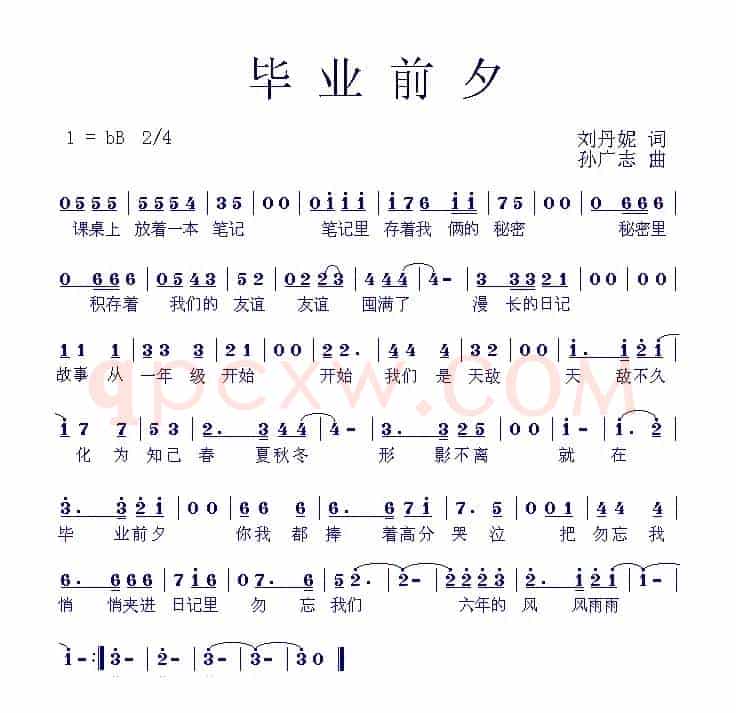 毕业前夕
1 = bB 2/4
刘丹妮 词
孙广志 曲
0555|5554|35|00|0iii|i76 ii|75|00|0 666|
课桌上 放着一本 笔记 笔记里 存着我 俩的 秘密 秘密里
0 666|0543|52|0223|444|4-|3. 3321|00|00|
积存着 我们的 友谊 友谊 囤满了 漫 长的日记
11 1|33 3|21|00|22.|44 4|32|00|i. i|i2i|
故事 从 一年 级 开始 开始 我们 是 天敌 天 敌不久
i7 7|53|2. 344|4-|3. 325|00|i-|i. 2|
化 为 知己 春 夏秋冬 形 影不离 就 在
3. 32i|00|66 6|6. 67i|7. 5|001|44 4|
毕 业前夕 你我 都 捧 着高分 哭 泣 把 勿忘 我
6. 663|7i6|07. 6|52|2-|2223|2. i2i|i-|
悄 悄夹进 日记里 勿 忘 我们 六年的 风 风雨雨
i-:|3-|2-|3-|3-|30|
qpcxw.com